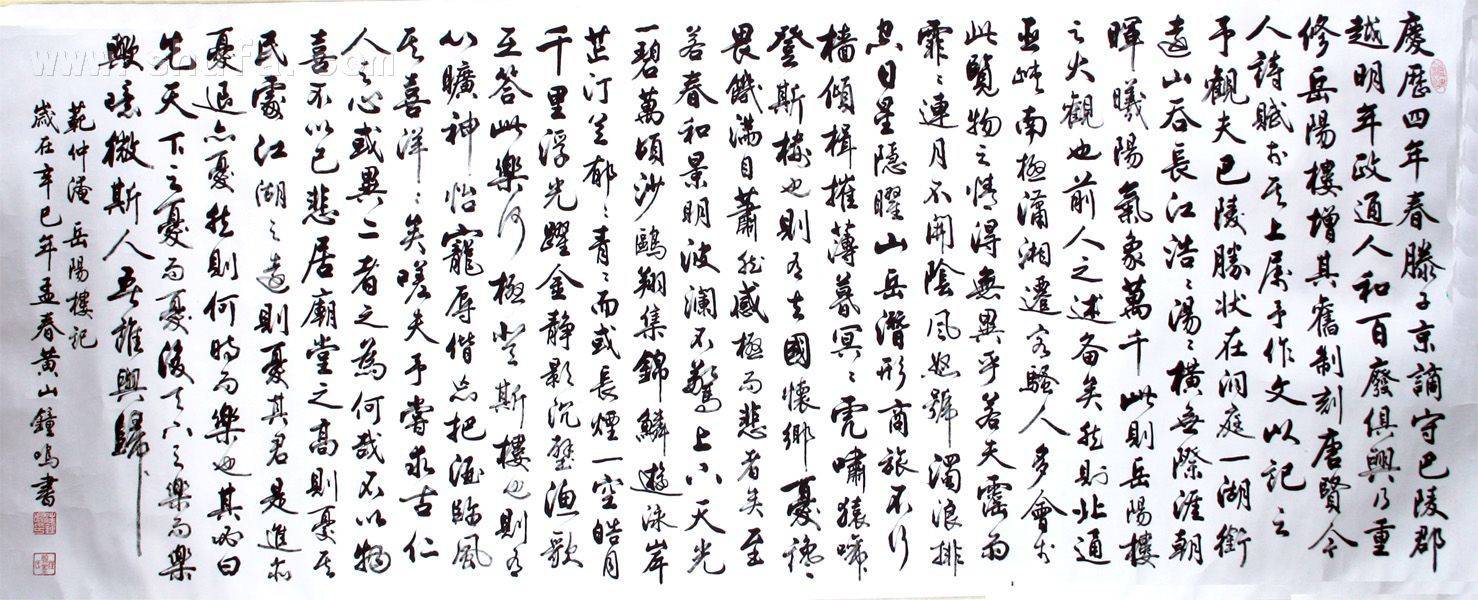 慶歷四年春滕子京謫守巴陵郡
越明年政通人和百廢俱興乃重
修岳陽樓增其舊制刻唐賢今
人詩賦於其上屬予作文以記之
予觀夫巴陵勝狀在洞庭一湖銜
遠山吞長江浩浩湯湯橫無際涯朝
暉曦陽氣象萬千此則岳陽樓
之大觀也前人之述备矣然則北通
巫峽南極瀟湘遷客騷人多會於
此覽物之情得無異乎若夫霪雨
霏霏連月不開陰風怒號濁浪排
空日星隱曜山岳潛形商旅不行
檣傾楫摧薄暮冥冥虎嘯猿啼
登斯樓也則有去國懷鄉憂讒
畏譏滿目蕭然感極而悲者矣至
若春和景明波瀾不驚上下天光
一碧萬頃沙鷗翔集錦鱗遊泳岸
芷汀蘭郁郁青青而或長煙一空皓月
千里浮光躍金静影沉璧漁歌
互答此樂何極登斯樓也則有
心曠神怡寵辱偕忘把酒臨風
其喜洋洋矣嗟夫予嘗求古仁
人之心或異二者之為何哉不以物
喜不以己悲居廟堂之高則憂其
民處江湖之遠則憂其君是進亦
憂退亦憂然則何時而樂也其必曰
先天下之憂而憂後天下之樂而樂
歟噫微斯人吾誰與歸
範仲淹 岳陽樓記
歲在辛巳年孟春黄山鐘鳴書